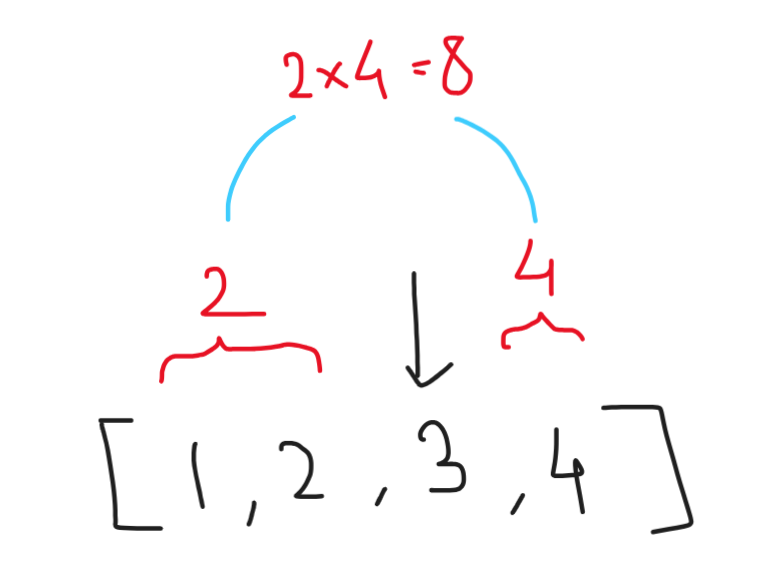 2×4=8
2 4
[1, 2, 3, 4]